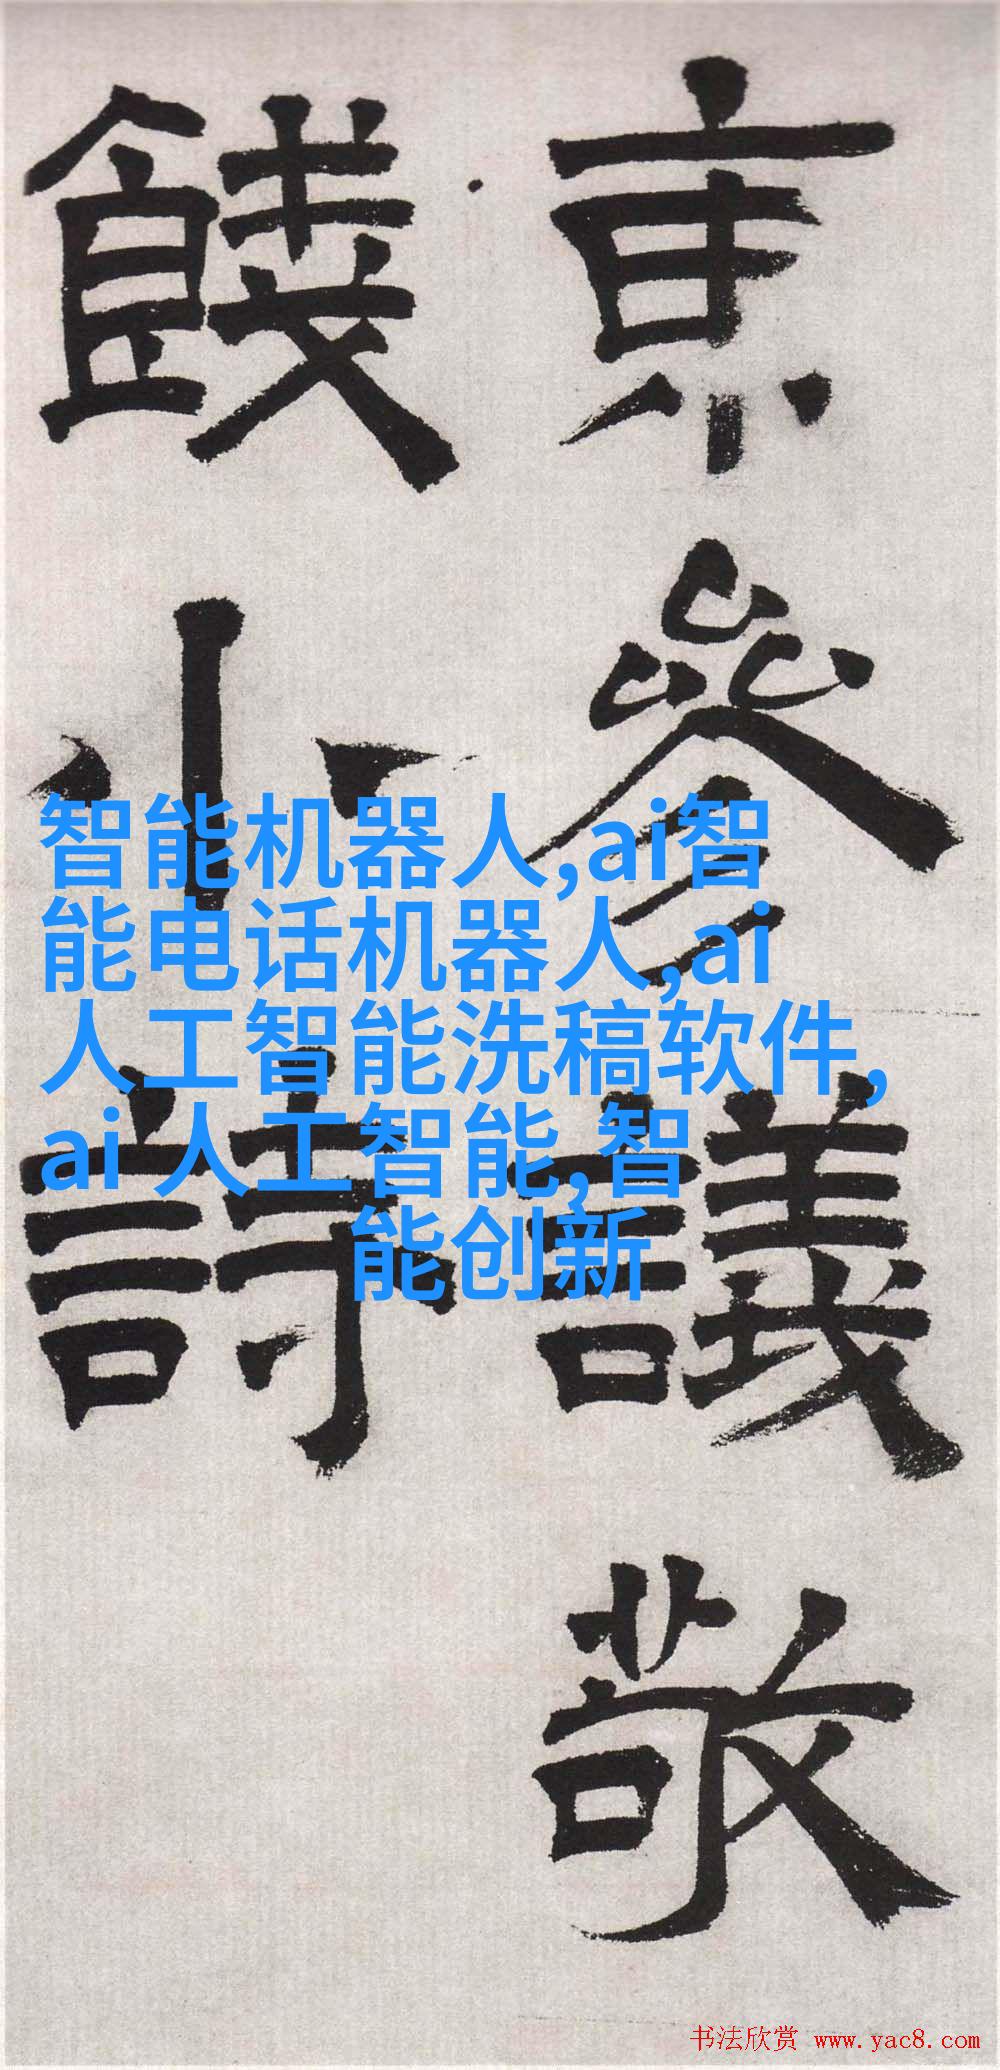 京參議敬
餞小詩
智能机器人,ai智
能电话机器人,ai
人工智能洗稿软件,
ai 人工智能,智
能创新
书法欣赏 www.yac8.com